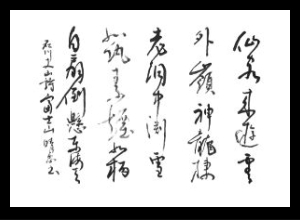 仙客来遊雲
外巓神龍棲
老洞中淵雪
如紈素煙如柄
白扇倒懸東海天
石川丈山詩 富士山